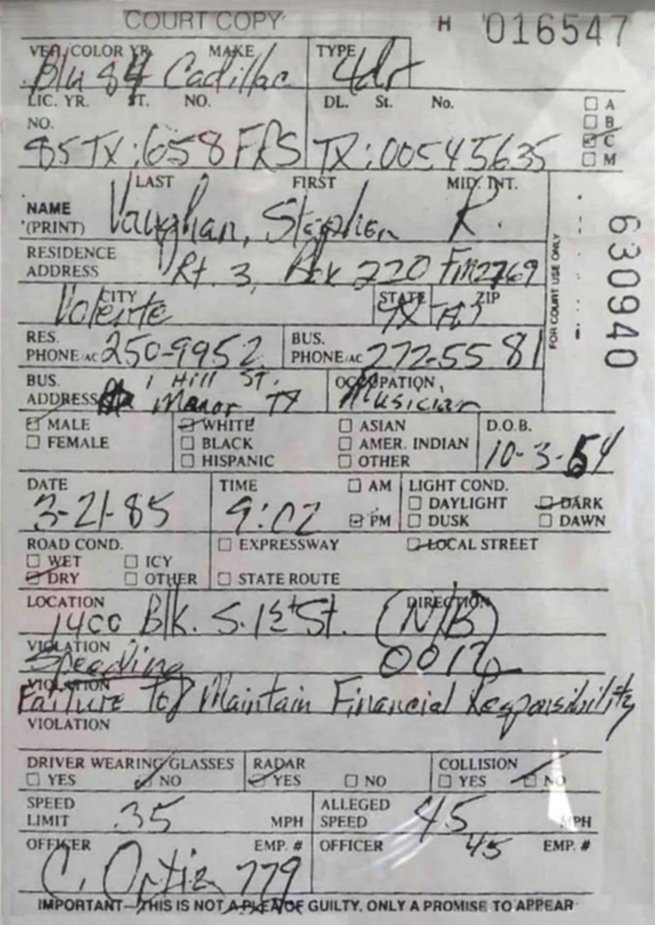 COURT COPY H 016547
VEH. COLOR YR. MAKE TYPE
Blu 84 Cadillac 4dr
LIC. YR. ST. NO. DL. St. No.
NO.
85 TX : 658 FRS TX : 00545635
☐ A
☐ B
☑ C
☐ M
LAST FIRST MID. INT.
NAME
(PRINT) Vaughan, Stephen R.
RESIDENCE
ADDRESS Rt. 3, Box 220 Fm2769
FOR COURT USE ONLY
630940
CITY STATE ZIP
Volente TX
RES.
PHONE AC 250-9952
BUS.
PHONE AC 272-5581
BUS.
ADDRESS 1 Hill St.
Manor TX
OCCUPATION
Musician
☑ MALE ☑ WHITE ☐ ASIAN D.O.B.
☐ FEMALE ☐ BLACK ☐ AMER. INDIAN
☐ HISPANIC ☐ OTHER 10-3-54
DATE TIME ☐ AM LIGHT COND.
3-21-85 9:02 ☑ PM
☐ DAYLIGHT ☑ DARK
☐ DUSK ☐ DAWN
ROAD COND. ☐ EXPRESSWAY ☑ LOCAL STREET
☐ WET ☐ ICY
☑ DRY ☐ OTHER ☐ STATE ROUTE
LOCATION DIRECTION
1400 Blk. S. 1st St. (N/B)
VIOLATION
Speeding
VIOLATION
Failure To Maintain Financial Responsibility
VIOLATION
DRIVER WEARING GLASSES RADAR COLLISION
☐ YES ☑ NO ☑ YES ☐ NO ☐ YES ☑ NO
SPEED
LIMIT 35 MPH
ALLEGED
SPEED 45 MPH
OFFICER EMP. # OFFICER 45 EMP. #
C. Ortiz 779
IMPORTANT—THIS IS NOT A PLEA OF GUILTY, ONLY A PROMISE TO APPEAR